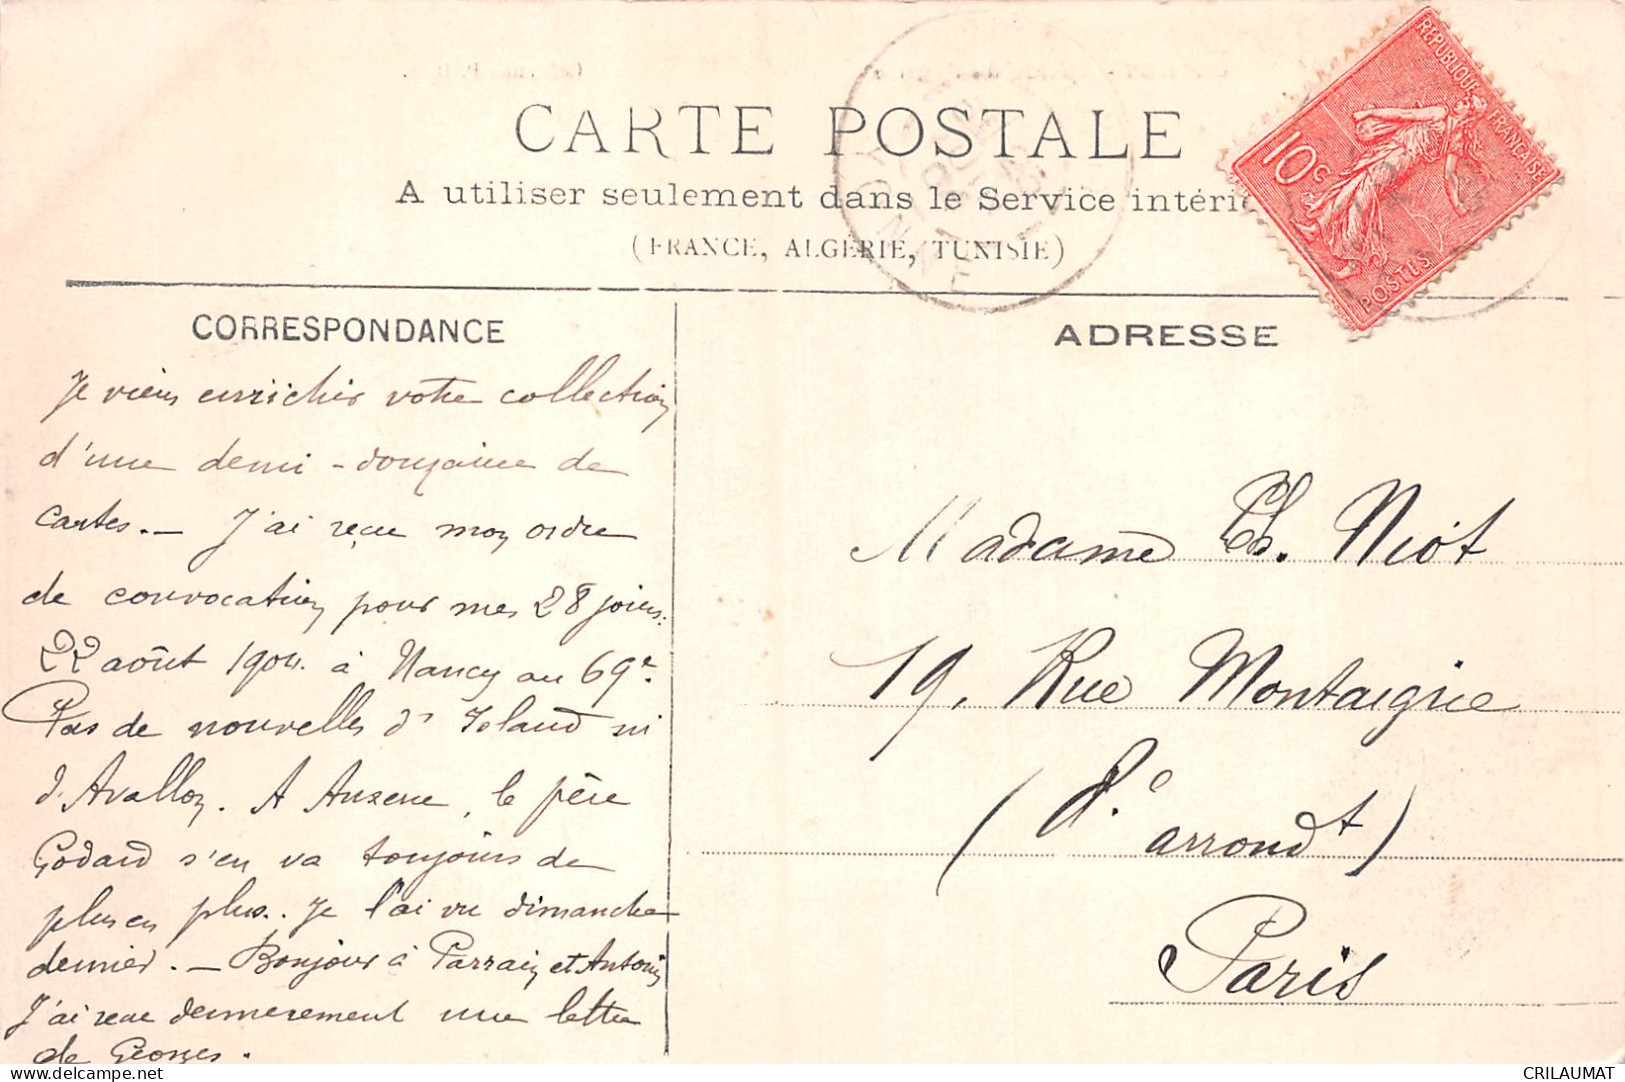 CARTE POSTALE
A utiliser seulement dans le Service intérie
(FRANCE, ALGÉRIE, TUNISIE)
RÉPUBLIQUE FRANÇAISE
10c
POSTES
CORRESPONDANCE
Je viens enrichir votre collection
d'une demi-douzaine de
cartes. — J'ai reçu mon ordre
de convocation pour mes 28 jours:
22 août 1904. à Nancy au 69e.
Pas de nouvelles d' Island ni
d'Avallon. A Auxerre, le père
Godard s'en va toujours de
plus en plus.. Je l'ai vu dimanche
dernier. — Bonjour à Parrain et Antonin
J'ai reçu dernièrement une lettre
de Georges.
ADRESSE
Madame Ch. Niot
19, Rue Montaigne
( arrondt)
Paris
delcampe.net
CRILAUMAT